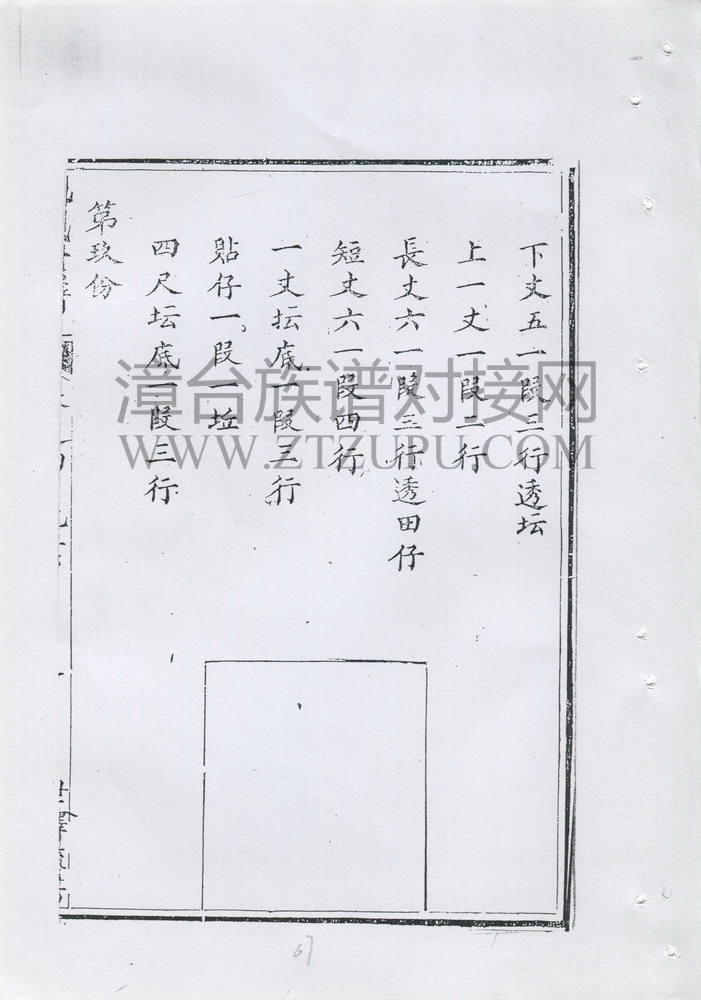 下丈五一段三行透坛
上一丈一段二行
長丈六一段三行透田仔
短丈六一段四行
一丈坛底一段三行
貼仔一段一坵
四尺坛底一段三行
第玖份
漳台族谱对接网
WWW.ZTZUPU.COM
67